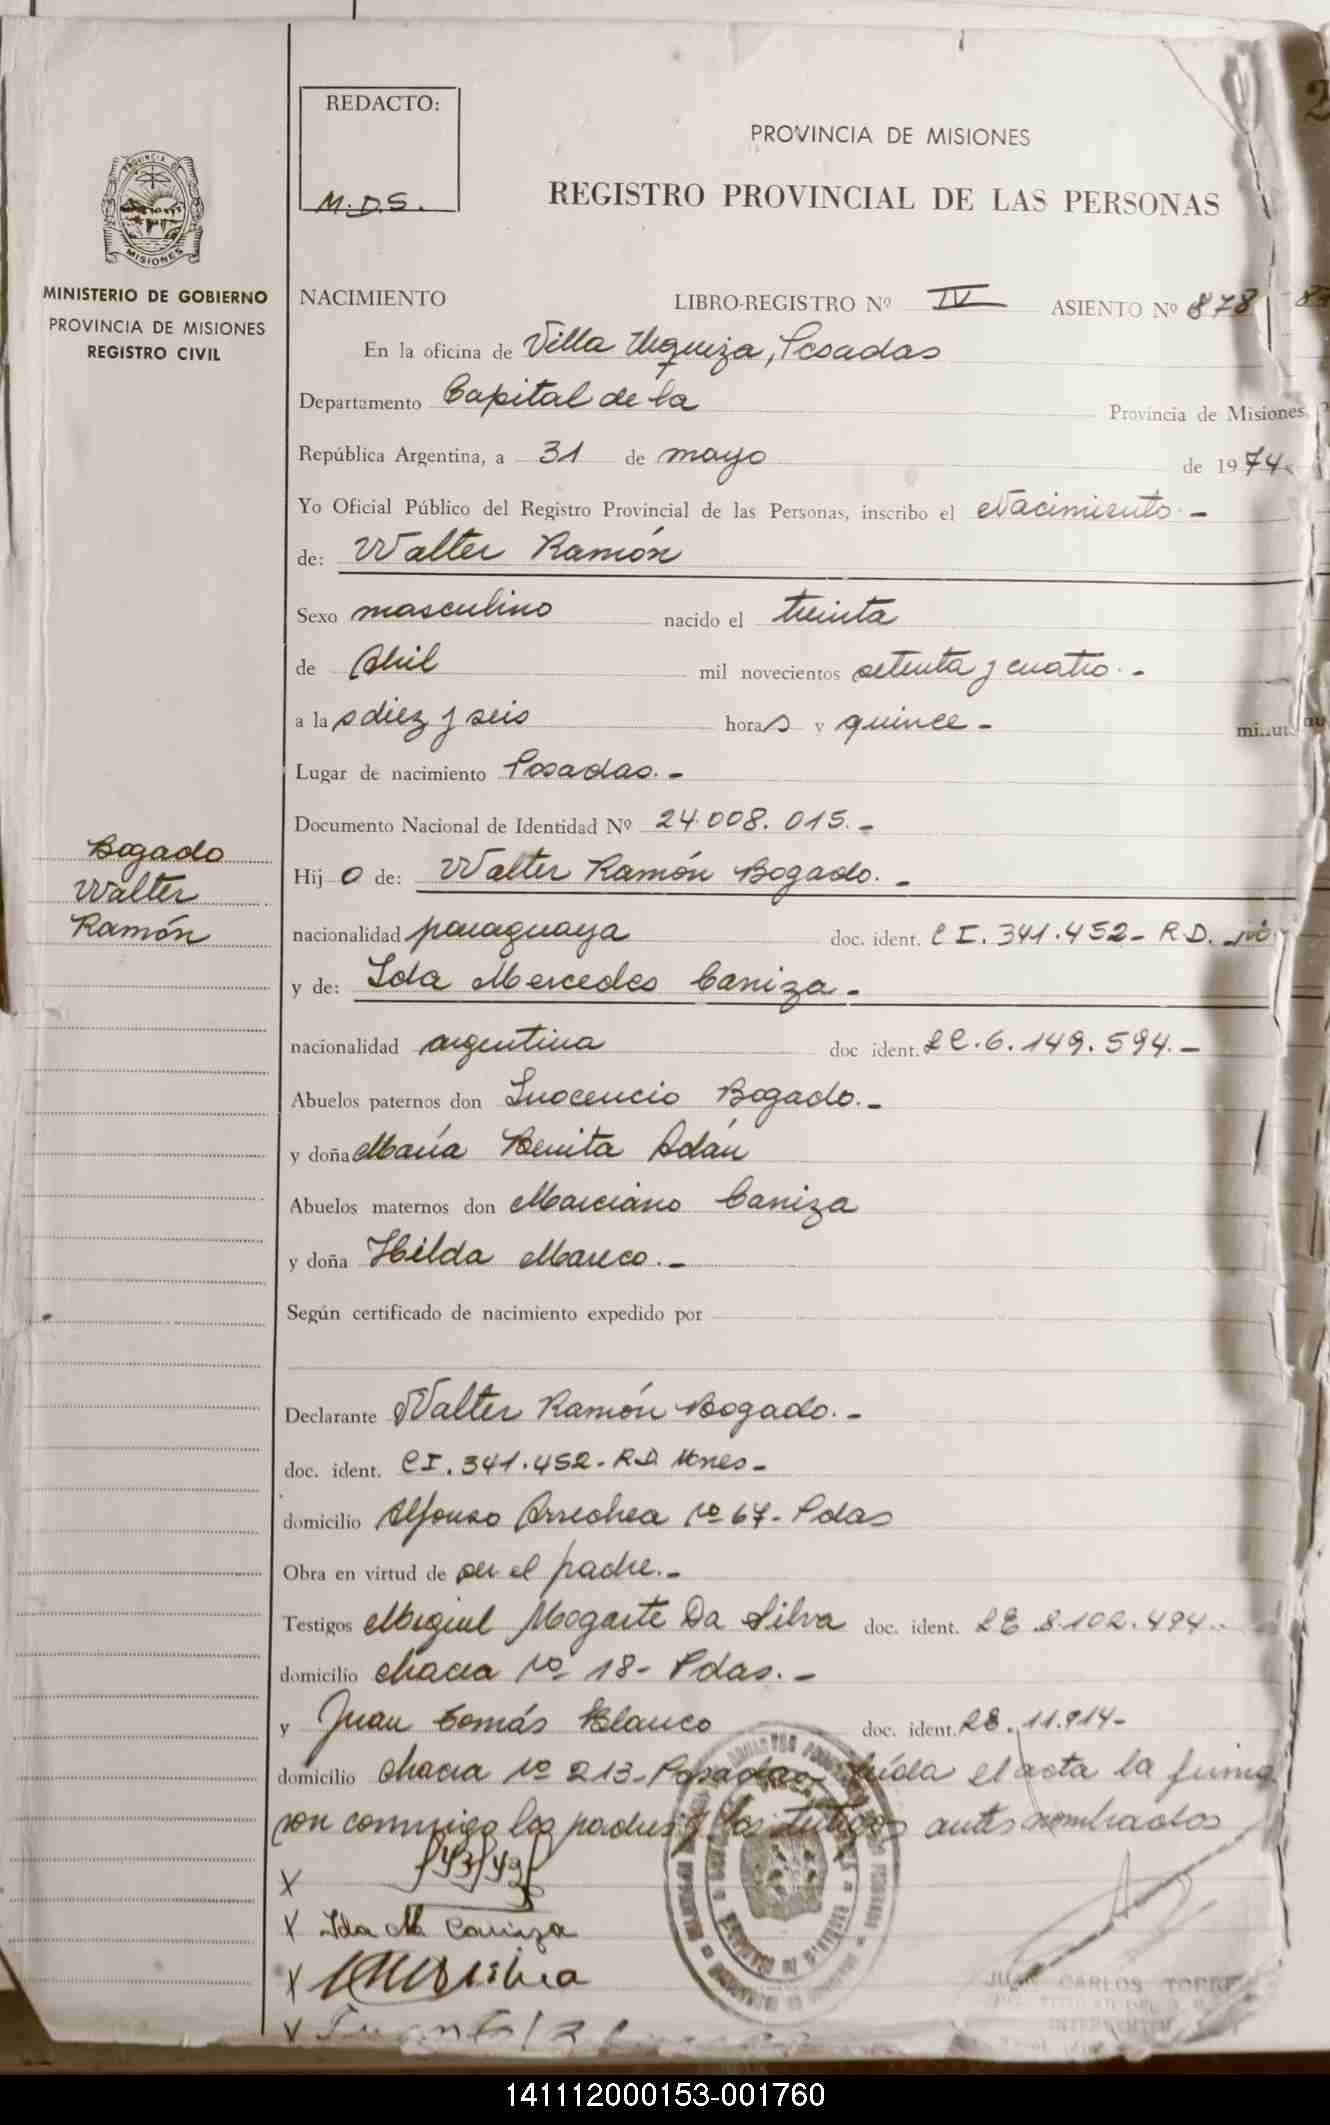 REDACTO:
M.D.S.
PROVINCIA DE MISIONES
REGISTRO PROVINCIAL DE LAS PERSONAS
MINISTERIO DE GOBIERNO
PROVINCIA DE MISIONES
REGISTRO CIVIL
NACIMIENTO LIBRO-REGISTRO Nº IV ASIENTO Nº 878
En la oficina de Villa Urquiza, Posadas
Departamento Capital de la Provincia de Misiones,
República Argentina, a 31 de mayo de 1974
Yo Oficial Público del Registro Provincial de las Personas, inscribo el Nacimiento.-
de: Walter Ramón
Sexo masculino nacido el treinta
de Abril mil novecientos setenta y cuatro.-
a las diez y seis horas y quince-
Lugar de nacimiento Posadas.-
Documento Nacional de Identidad Nº 24.008.015.-
Bogado
Walter
Ramón
Hijo de: Walter Ramón Bogado.-
nacionalidad paraguaya doc. ident. CI. 341.452- R.D.
y de: Ida Mercedes Caniza-
nacionalidad argentina doc ident. LC.6.149.594.-
Abuelos paternos don Inocencio Bogado.-
y doña María Benita Adán
Abuelos maternos don Marciano Caniza
y doña Hilda Mareco.-
Según certificado de nacimiento expedido por
Declarante Walter Ramón Bogado.-
doc. ident. CI. 341.452- R.D. Mnes-
domicilio Alfonso Arrechea nº 67- Pdas
Obra en virtud de ser el padre.-
Testigos Miguel Mogarte Da Silva doc. ident. LE 8.102.494.-
domicilio chacra nº 18- Pdas.-
y Juan Tomás Blanco doc. ident. 11.914-
domicilio chacra nº 213- Posadas leída el acta la firma
ron conmigo los padres y los testigos antes nombrados
X
X Ida M Caniza
X
X
JUAN CARLOS TORRE
141112000153-001760